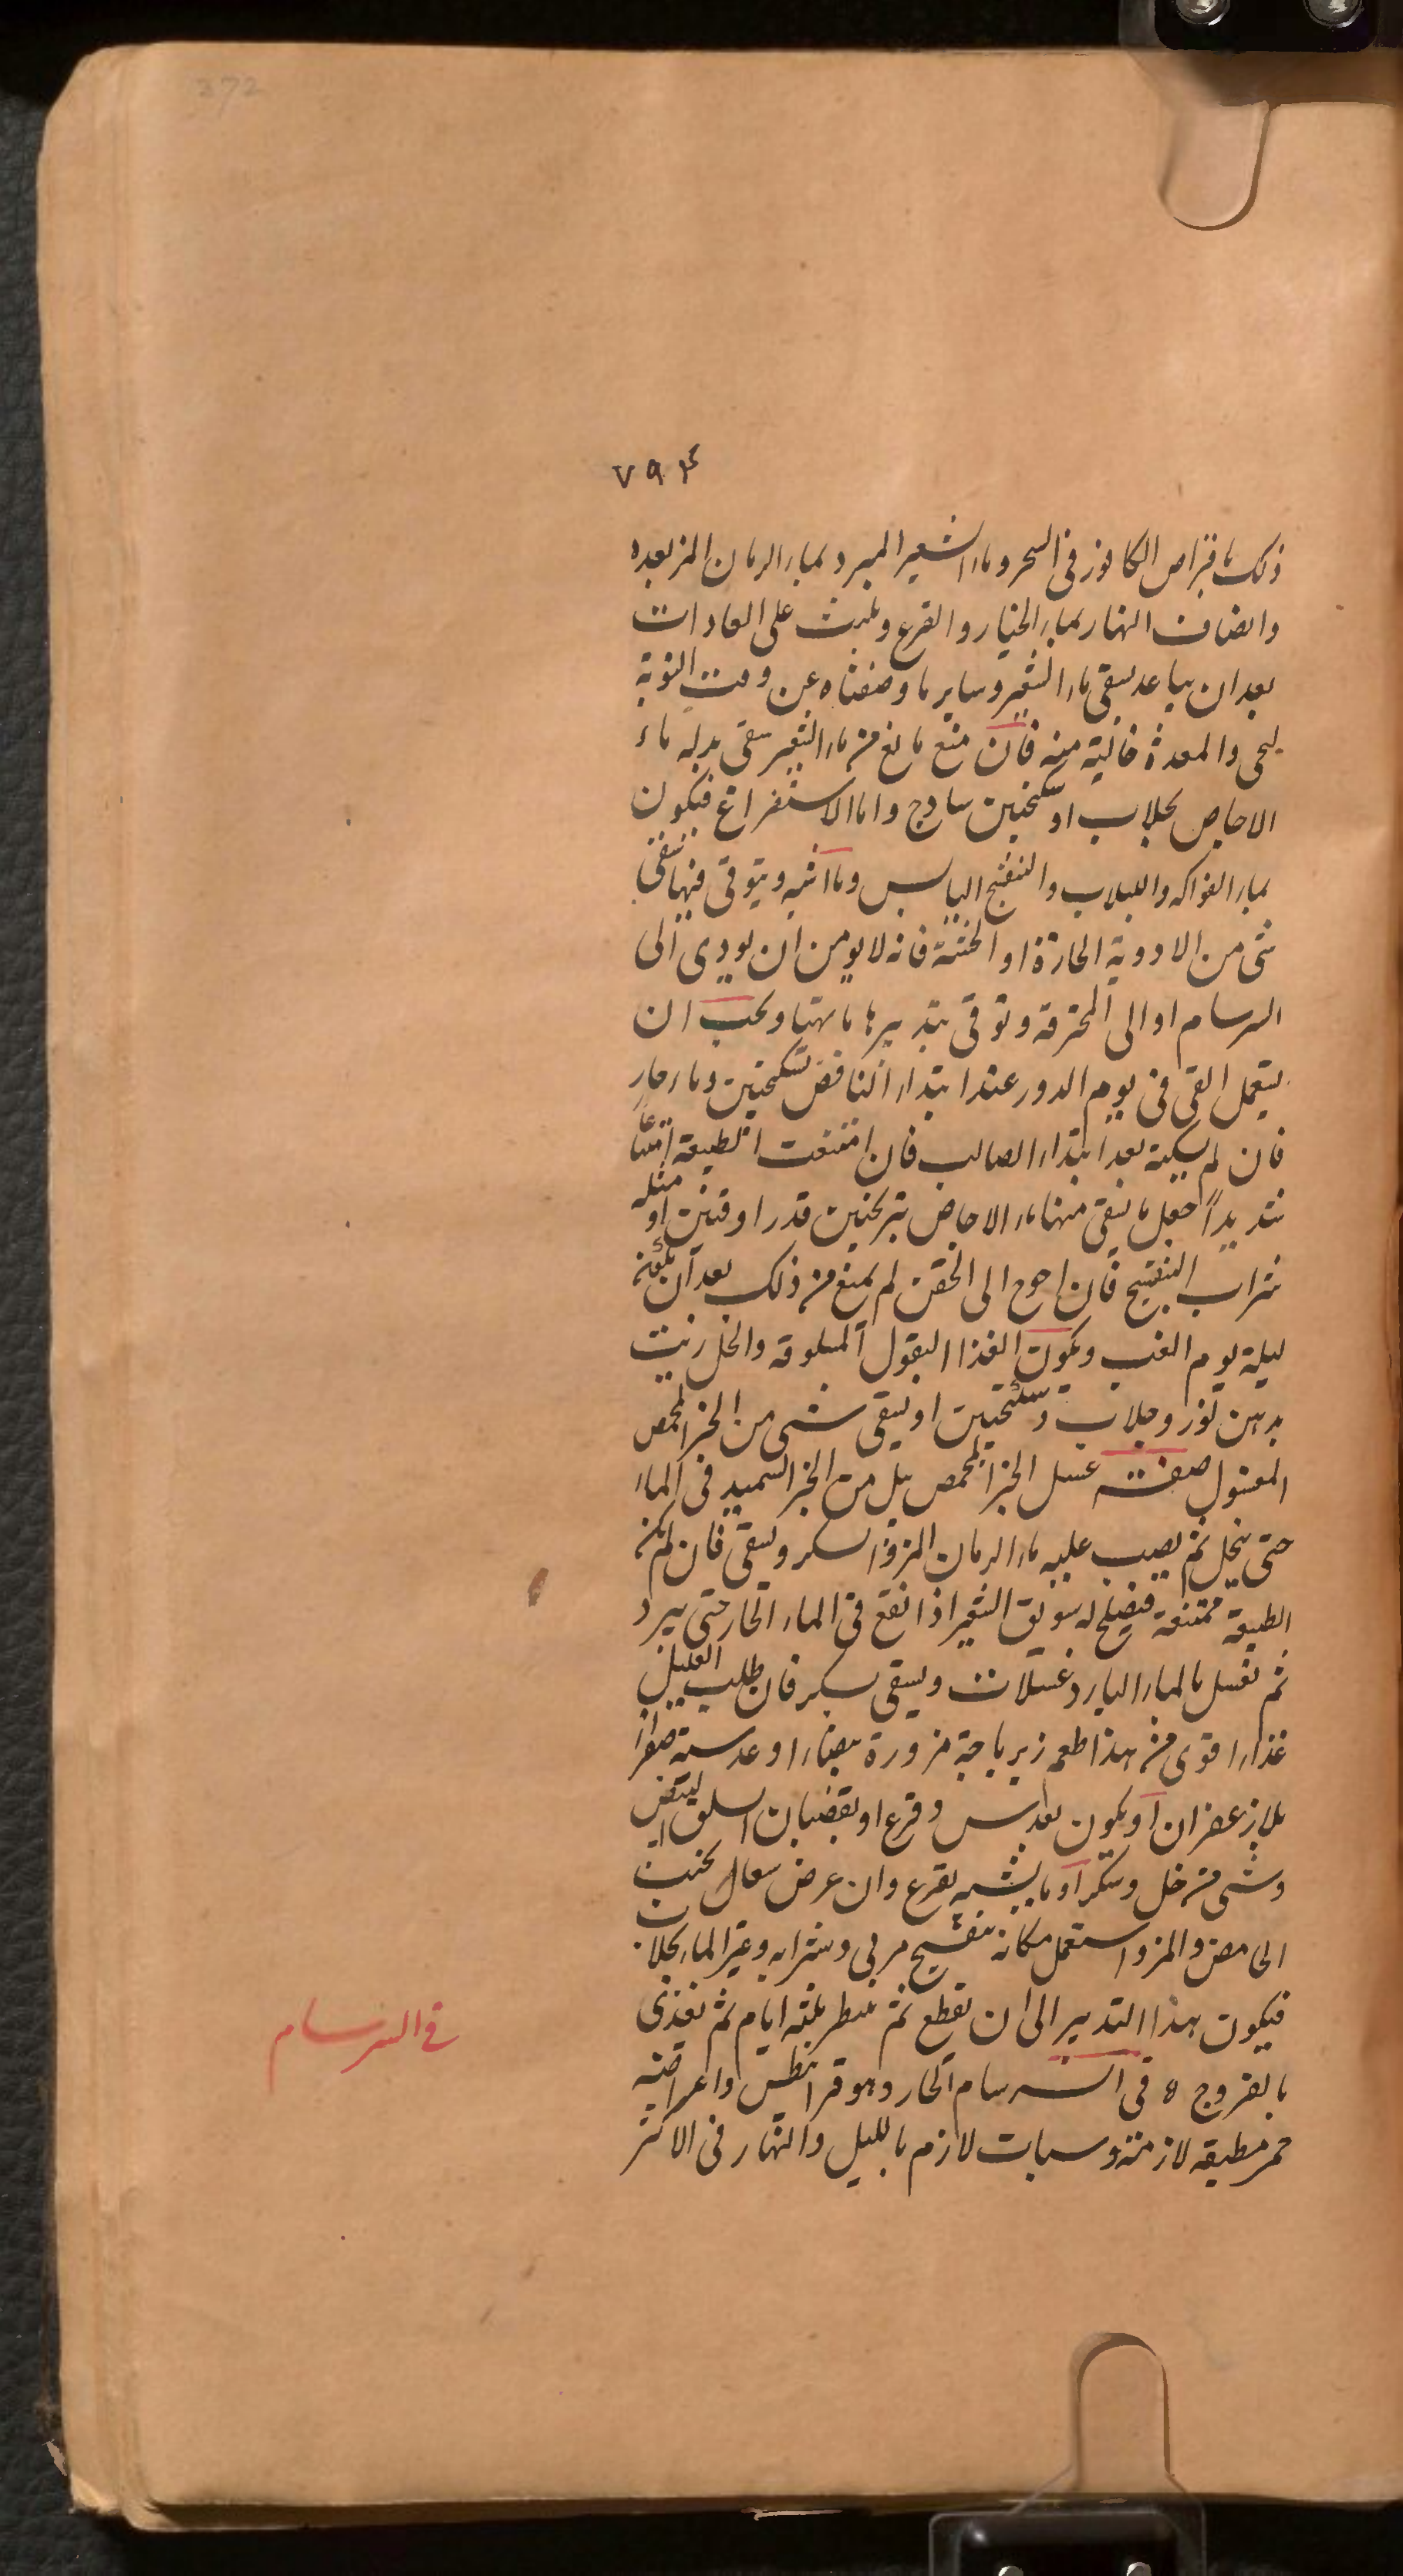 372
٧٩٤
ذلك باقراص الكافور فى السحر وماء الشعير المبرد بماء الرمان المز بعده
وانصاف النهار بماء الخيار والقرع ويلبث على العادات
بعد ان يباعد بسقى ماء الشعير وساير ما وصفناه عن وقت النوبة
ليحمى والمعدة خالية منه فان منع مانع من ماء الشعير سقى بدله ماء
الاجاص بجلاب او سكنجبين ساذج واما الاستفراغ فيكون
بماء الفواكه واللبلاب والبنفسج اليابس وما اشبه ويتوقى فيها سقى
شى من الادوية الحارة او الخشنة فانه لا يومن ان يودى الى
السرسام او الى المحرقه وتوقى بتدبيرها ويجب ان
يستعمل القى فى يوم الدور عند ابتداء النافض بسكنجبين وماء حار
فان لم يمكنه بعد ابتداء الصالب فان امتنعت الطبيعة امتناعًا
شديدًا جعل ما يسقى منها ماء الاجاص بترنجبين قدر اوقيتين او مثله
شراب البنفسج فان احوج الى الحقن لم يمنع من ذلك بعد ان
ليلة يوم الغب ويكون الغذا البقول المسلوقه والخل زيت
بدهن لوز وجلاب وسكنجبين او يسقى شى من الخبز المحمص
المغسول صفة غسل الخبز المحمص يبل من الخبز السميد فى الماء
حتى ينحل ثم يصب عليه ماء الرمان المز والسكر ويسقى فان لم تكن
الطبيعة ممتنعة فيصلح له سويق الشعير اذا انقع فى الماء الحار حتى يبرد
ثم تغسل بالماء البارد غسلات ويسقى بسكر فان طلب العليل
غذاء اقوى من هذا اطعم زيرباجة مزورة بيضاء او عدسية صفراء
بلا زعفران او يكون بعدس وقرع او بقضبان السلق البيض
وشى من خل وسكر او ما يشبه بقرع وان عرض سعال يجتنب
الى مص والمز واستعمل مكانه بنفسج مربى وشرابه وغير الماء بجلاب
فيكون هذا التدبير الى ان تقطع ثم ينظر ثلثه ايام ثم يغذى
بالفروج ه فى السرسام الحار وهو قرانيطس واعراضه
حمى مطبقه لازمة وسبات لازم بالليل والنهار فى الاكثر
فى السرسام